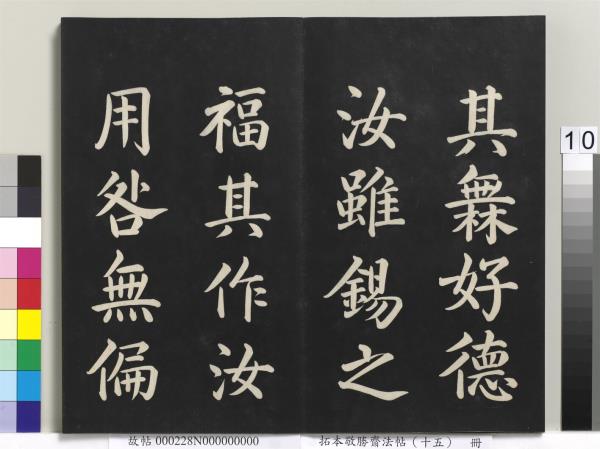 其橆好德
汝雖錫之
福其作汝
用咎無偏
10
故帖 000228N000000000 拓本敬勝齋法帖（十五） 冊